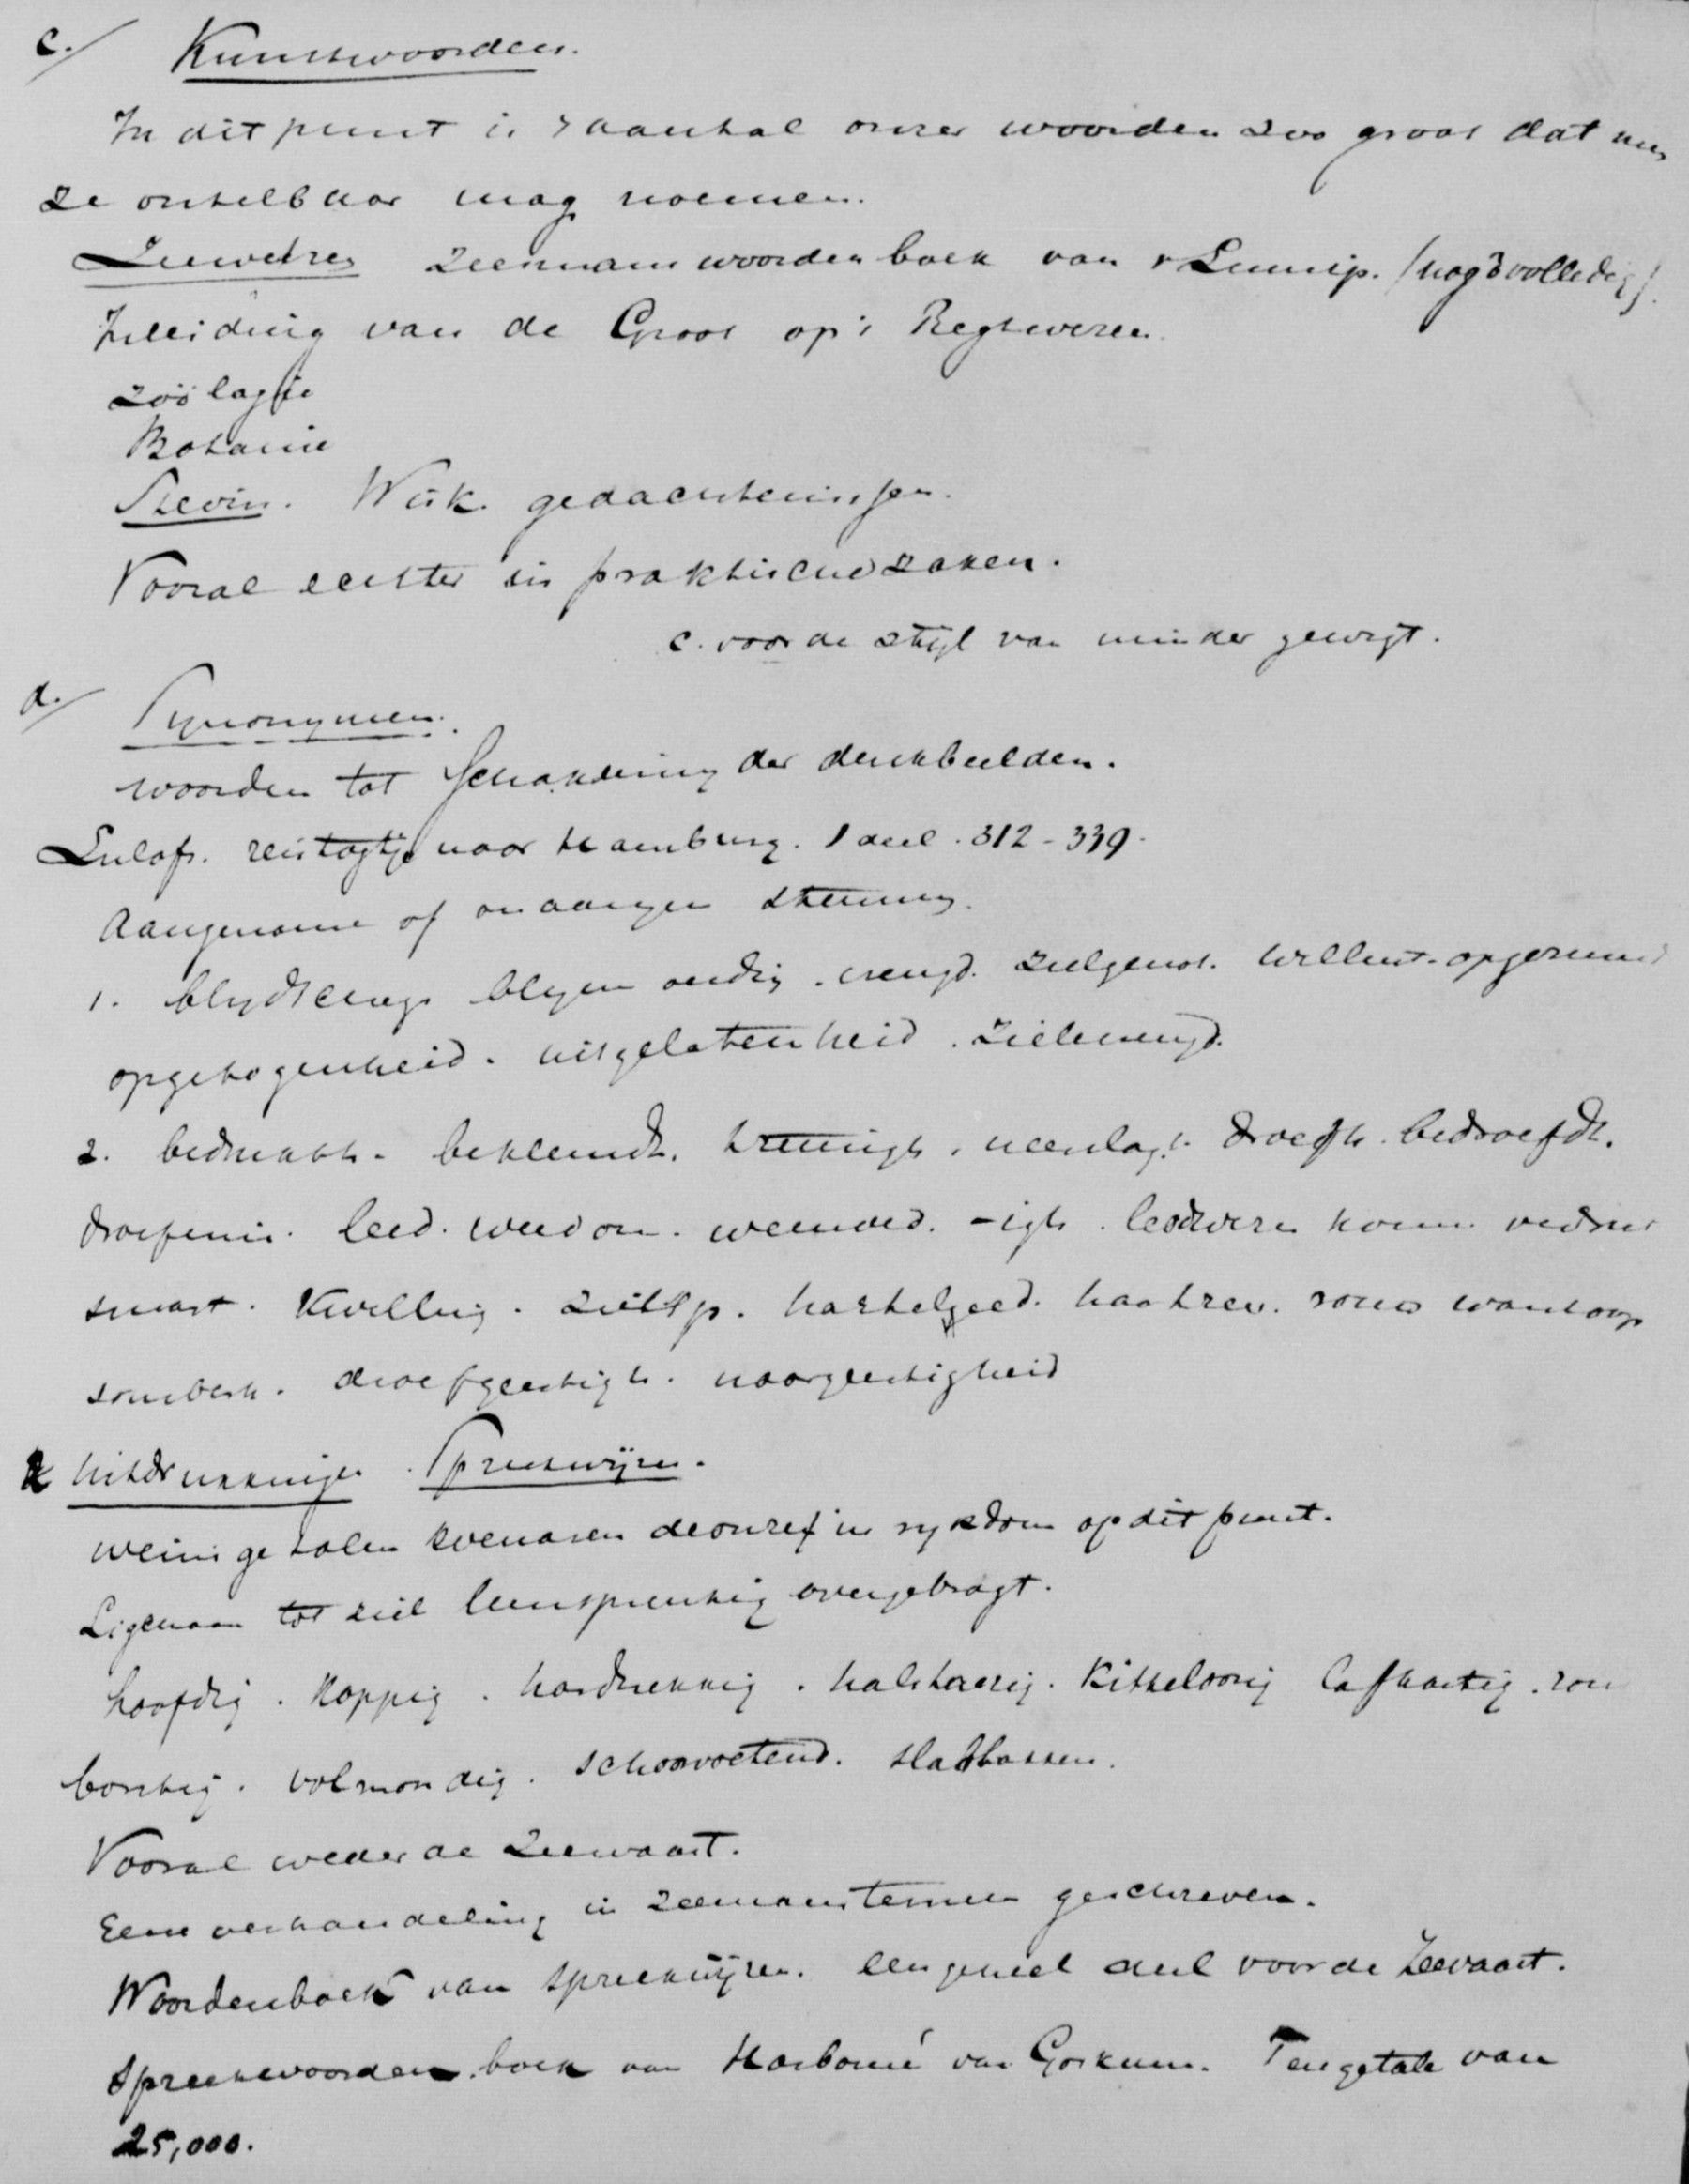 c./ Kunstwoorden.
In dit punt is 't aantal onzer woorden zoo groot dat men
ze ontelbaar mag noemen.
Zeewetens Zeemans woordenboek van v Lennip. (nog 3 volledig).
Inleiding van de Groot op 't Regtwezen.
Zoölogie
Botanie
Stevin. Wisk. gedachtenissen.
Vooral echter in praktische zaken.
c. voor de stijl van minder gewigt.
d./ Synonymen.
woorden tot Schakering der denkbeelden.
Lulofs. reistogtje naar Hamburg. 1 deel. 312-339.
Aangename of onaangen stemming.
1. blydsch blygeen vreugd. zielgenot. opgeruimd
opgetogenheid. uitgelatenheid. zielevreugd.
2. bedrukth. beklemdh. treurigh. neerslagt. droefh. bedroefdh.
droefenis. leed. weedom. weemoed. -igh. leedwezen komm. verdriet
smart. kwelling. zielsp. hartelgeed. hartzeer. rouw wanhoop
somberh. droefgeestigh. naargeestigheid
Uitdrukkingen. Spreekwijzen.
weinige talen evenaren de onze in rykdom op dit punt.
Ligchaam tot ziel leenspreukig overgebragt.
hoofdig. koppig. hardnekkig. halstarrig. kittelorig lafhartig. ron
borstig. volmondig. schoorvoetend. slabbakken.
Vooral weder de Zeevaart.
Eene verhandeling in zeemanstermen geschreven.
Woordenboek van spreekwijzen. een geheel deel voor de Zeevaart.
Spreekwoordenboek van Harbomé van Gorkum. Ten getale van
25,000.